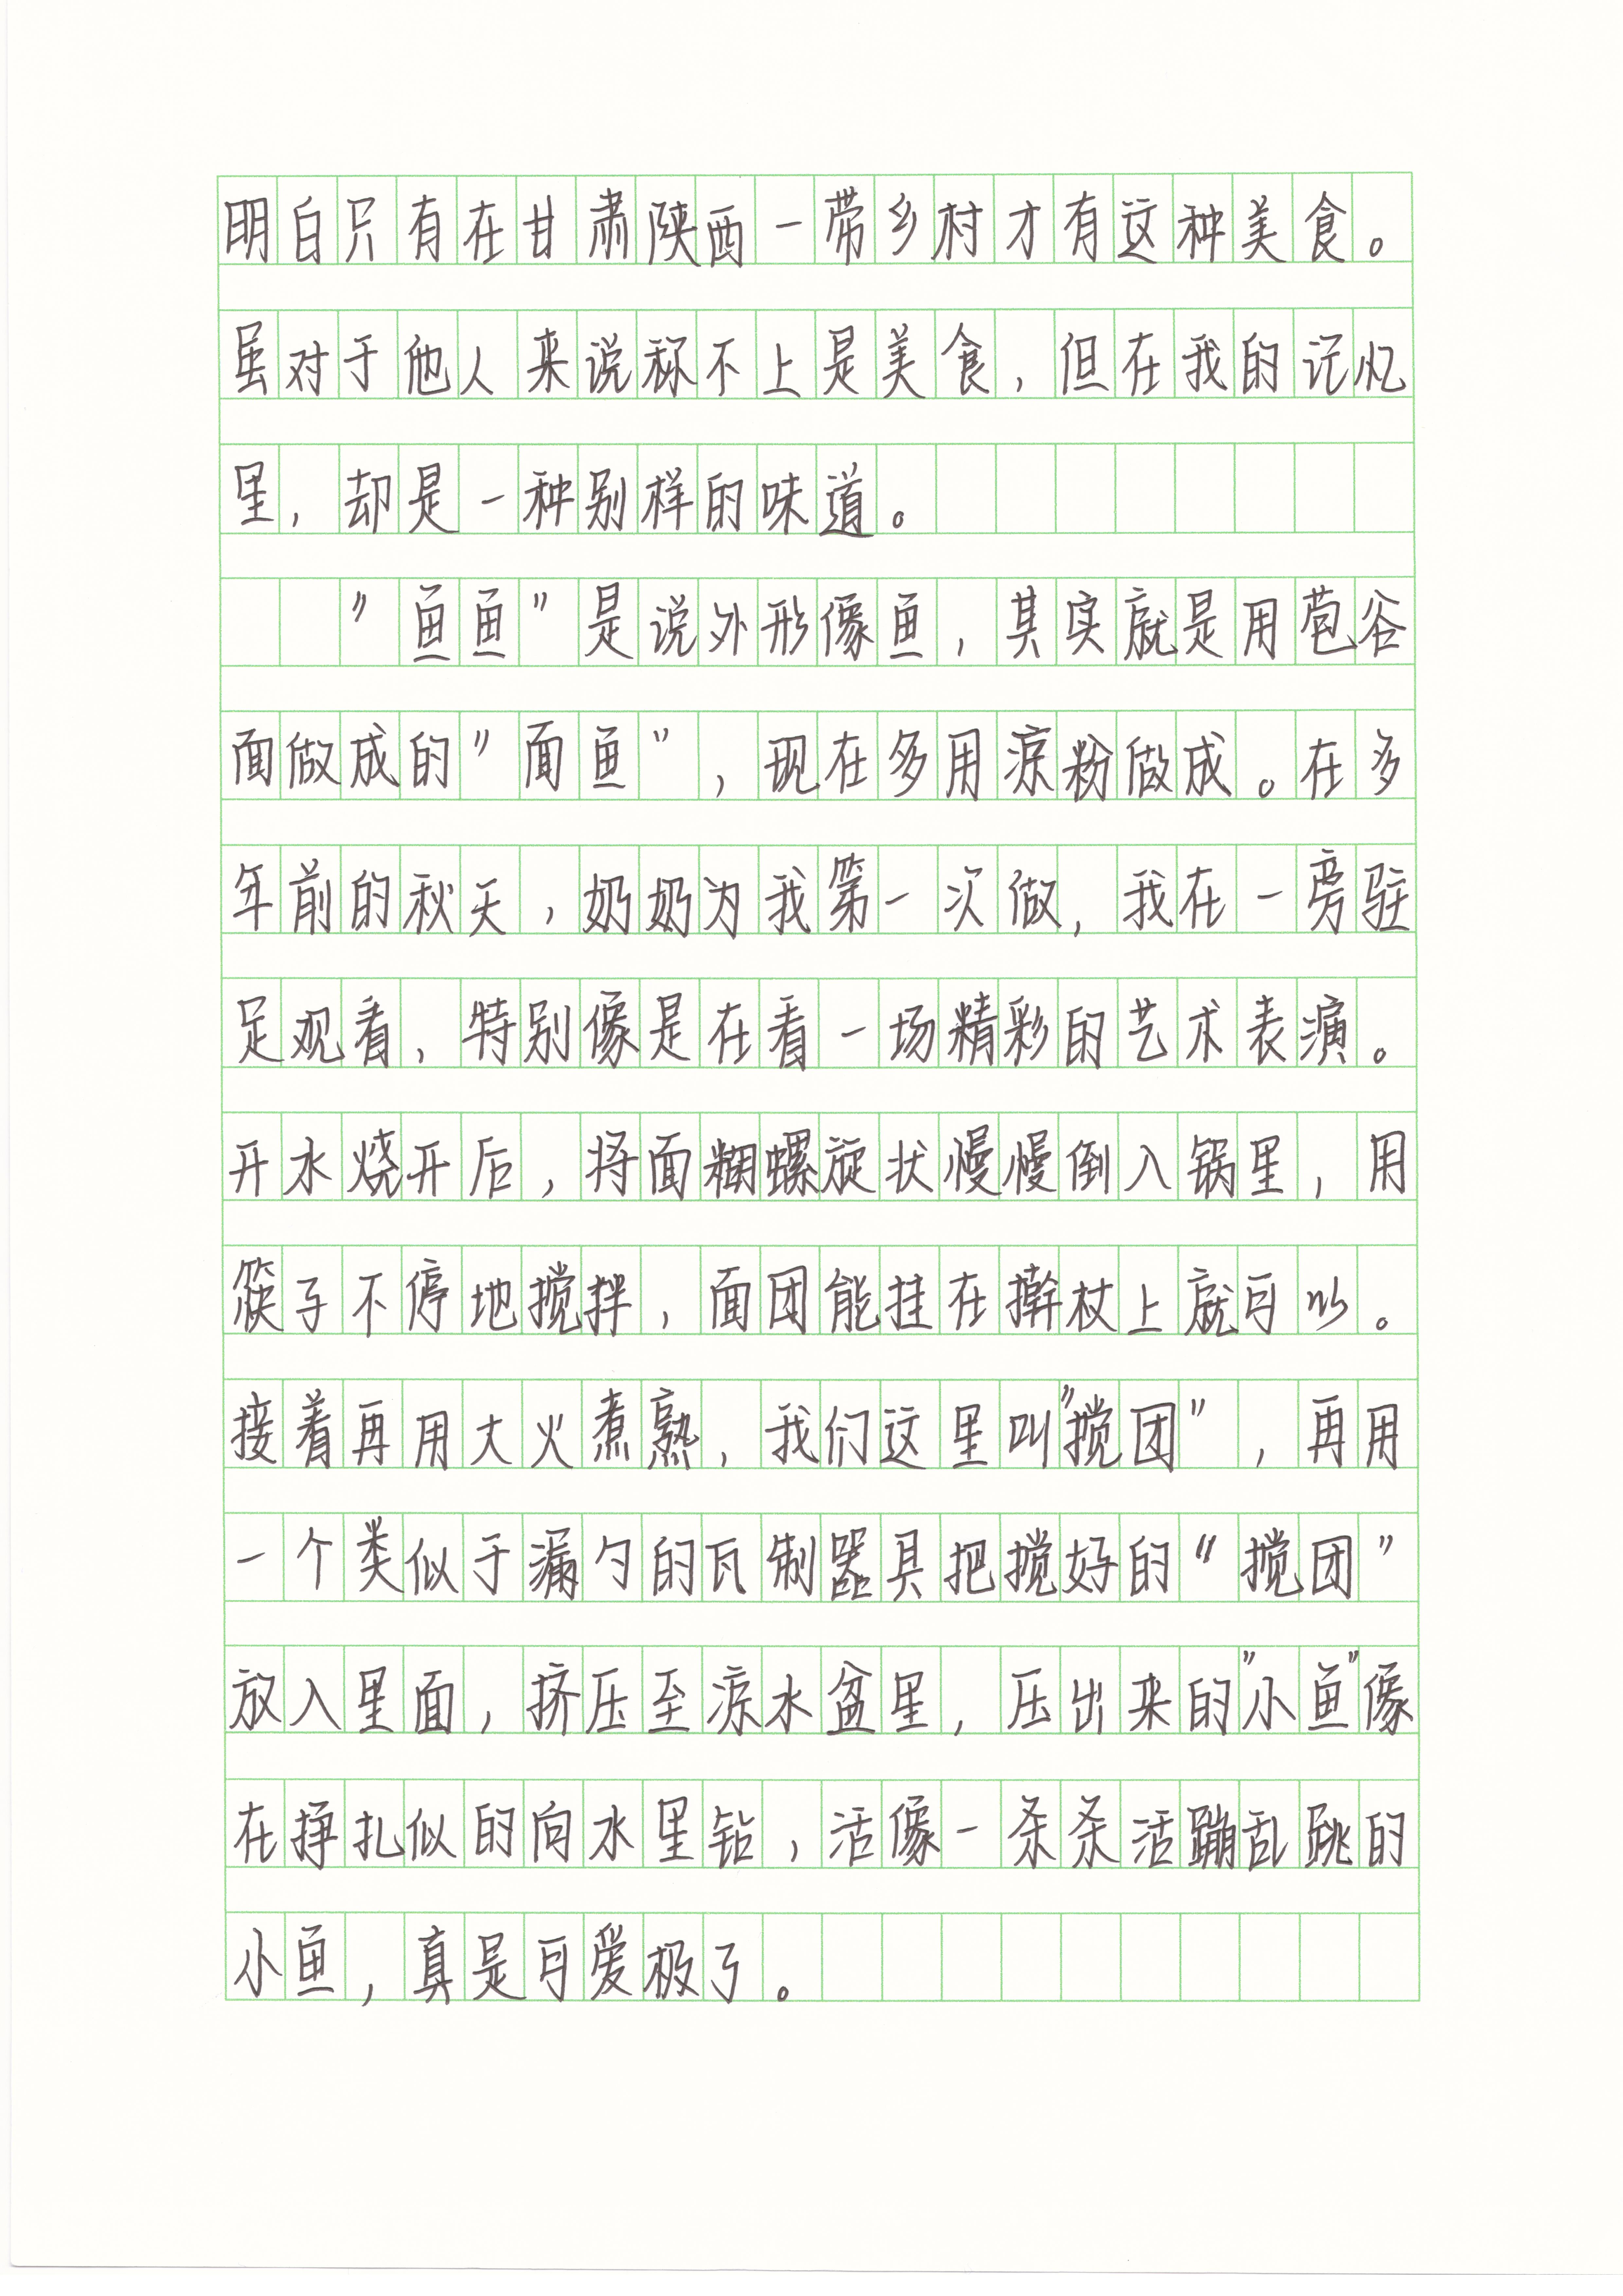 明白只有在甘肃陕西一带乡村才有这种美食。
虽对于他人来说称不上是美食，但在我的记忆
里，却是一种别样的味道。
”鱼鱼”是说外形像鱼，其实就是用苞谷
面做成的”面鱼”，现在多用凉粉做成。在多
年前的秋天，奶奶为我第一次做，我在一旁驻
足观看，特别像是在看一场精彩的艺术表演。
开水烧开后，将面糊螺旋状慢慢倒入锅里，用
筷子不停地搅拌，面团能挂在擀杖上就可以。
接着再用大火煮熟，我们这里叫”搅团”，再用
一个类似于漏勺的瓦制器具把搅好的“搅团”
放入里面，挤压至凉水盆里，压出来的”小鱼”像
在挣扎似的向水里钻，活像一条条活蹦乱跳的
小鱼，真是可爱极了。